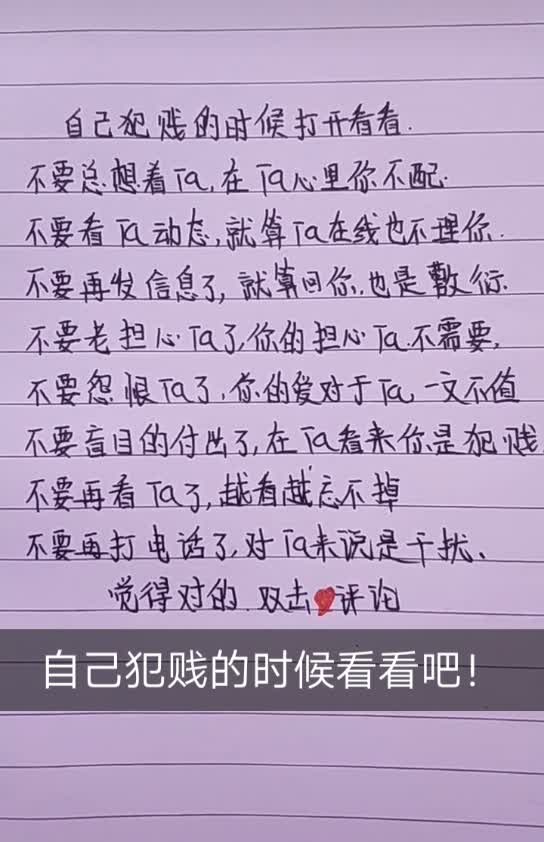 自己犯贱的时候打开看看.
不要总想着Ta,在Ta心里你不配.
不要看Ta动态,就算Ta在线也不理你.
不要再发信息了,就算回你,也是敷衍.
不要老担心Ta了,你的担心Ta不需要,
不要怨恨Ta了,你的爱对于Ta一文不值
不要盲目的付出了,在Ta看来你是犯贱.
不要再看Ta了,越看越忘不掉
不要再打电话了,对Ta来说是干扰、
觉得对的.双击❤评论
自己犯贱的时候看看吧!